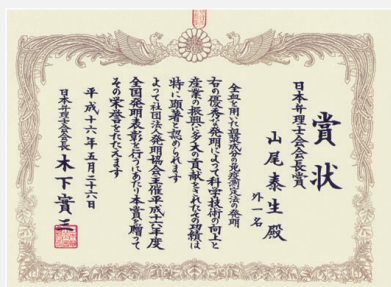 賞状
日本弁理士会会長賞
山尾泰生殿
外一名
全血を用いた試料成分の免疫測定法の発明
右の優秀な発明によって科学技術の向上と
産業の振興に多大の貢献をされその功績は
特に顕著と認められます
よって社団法人発明協会主催平成十六年度
全国発明表彰を行うにあたり本賞を贈って
その栄誉をたたえます
平成十六年五月二十六日
日本弁理士会会長 木下實三